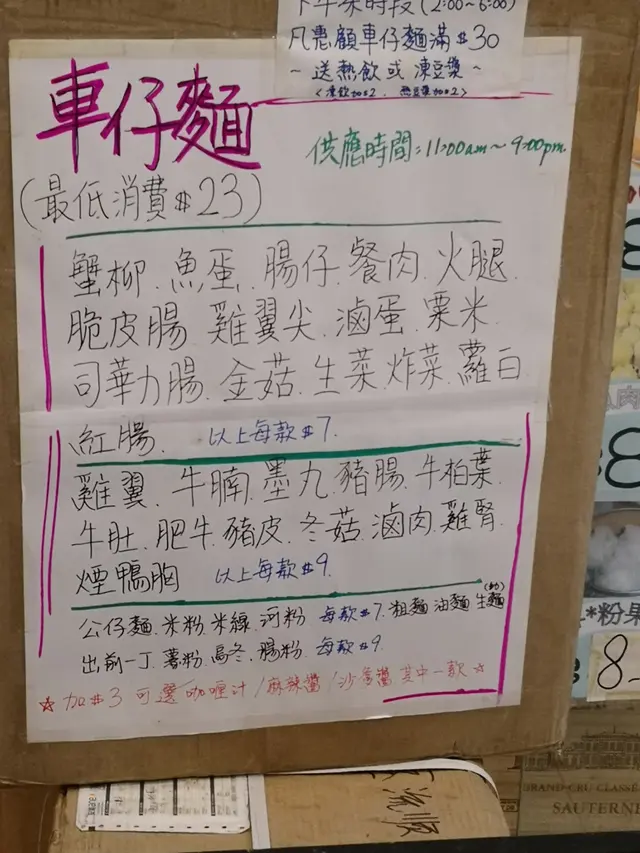 下午茶時段(2:00~6:00)
凡惠顧車仔麵滿$30
~送熱飲或凍豆漿~
<凍飲加$2. 熱豆漿加$2>
車仔麵
供應時間:11:00am~9:00pm.
(最低消費$23)
蟹柳.魚蛋.腸仔.餐肉.火腿.
脆皮腸.雞翼尖.滷蛋.粟米.
司華力腸.金菇.生菜.炸菜.蘿白
紅腸. 以上每款$7.
雞翼.牛腩.墨丸.豬腸.牛柏葉.
牛肚.肥牛.豬皮.冬菇.滷肉.雞腎.
煙鴨胸 以上每款$9.
公仔麵.米粉.米線.河粉 每款$7.粗麵 油麵 生麵(幼)
出前一丁.薯粉.烏冬.腸粉.每款$9.
☆加$3可選咖喱汁/麻辣醬/沙嗲醬 其中一款☆
*粉果
8
8
流順
GRAND CRU CLASSÉ
SAUTERNE